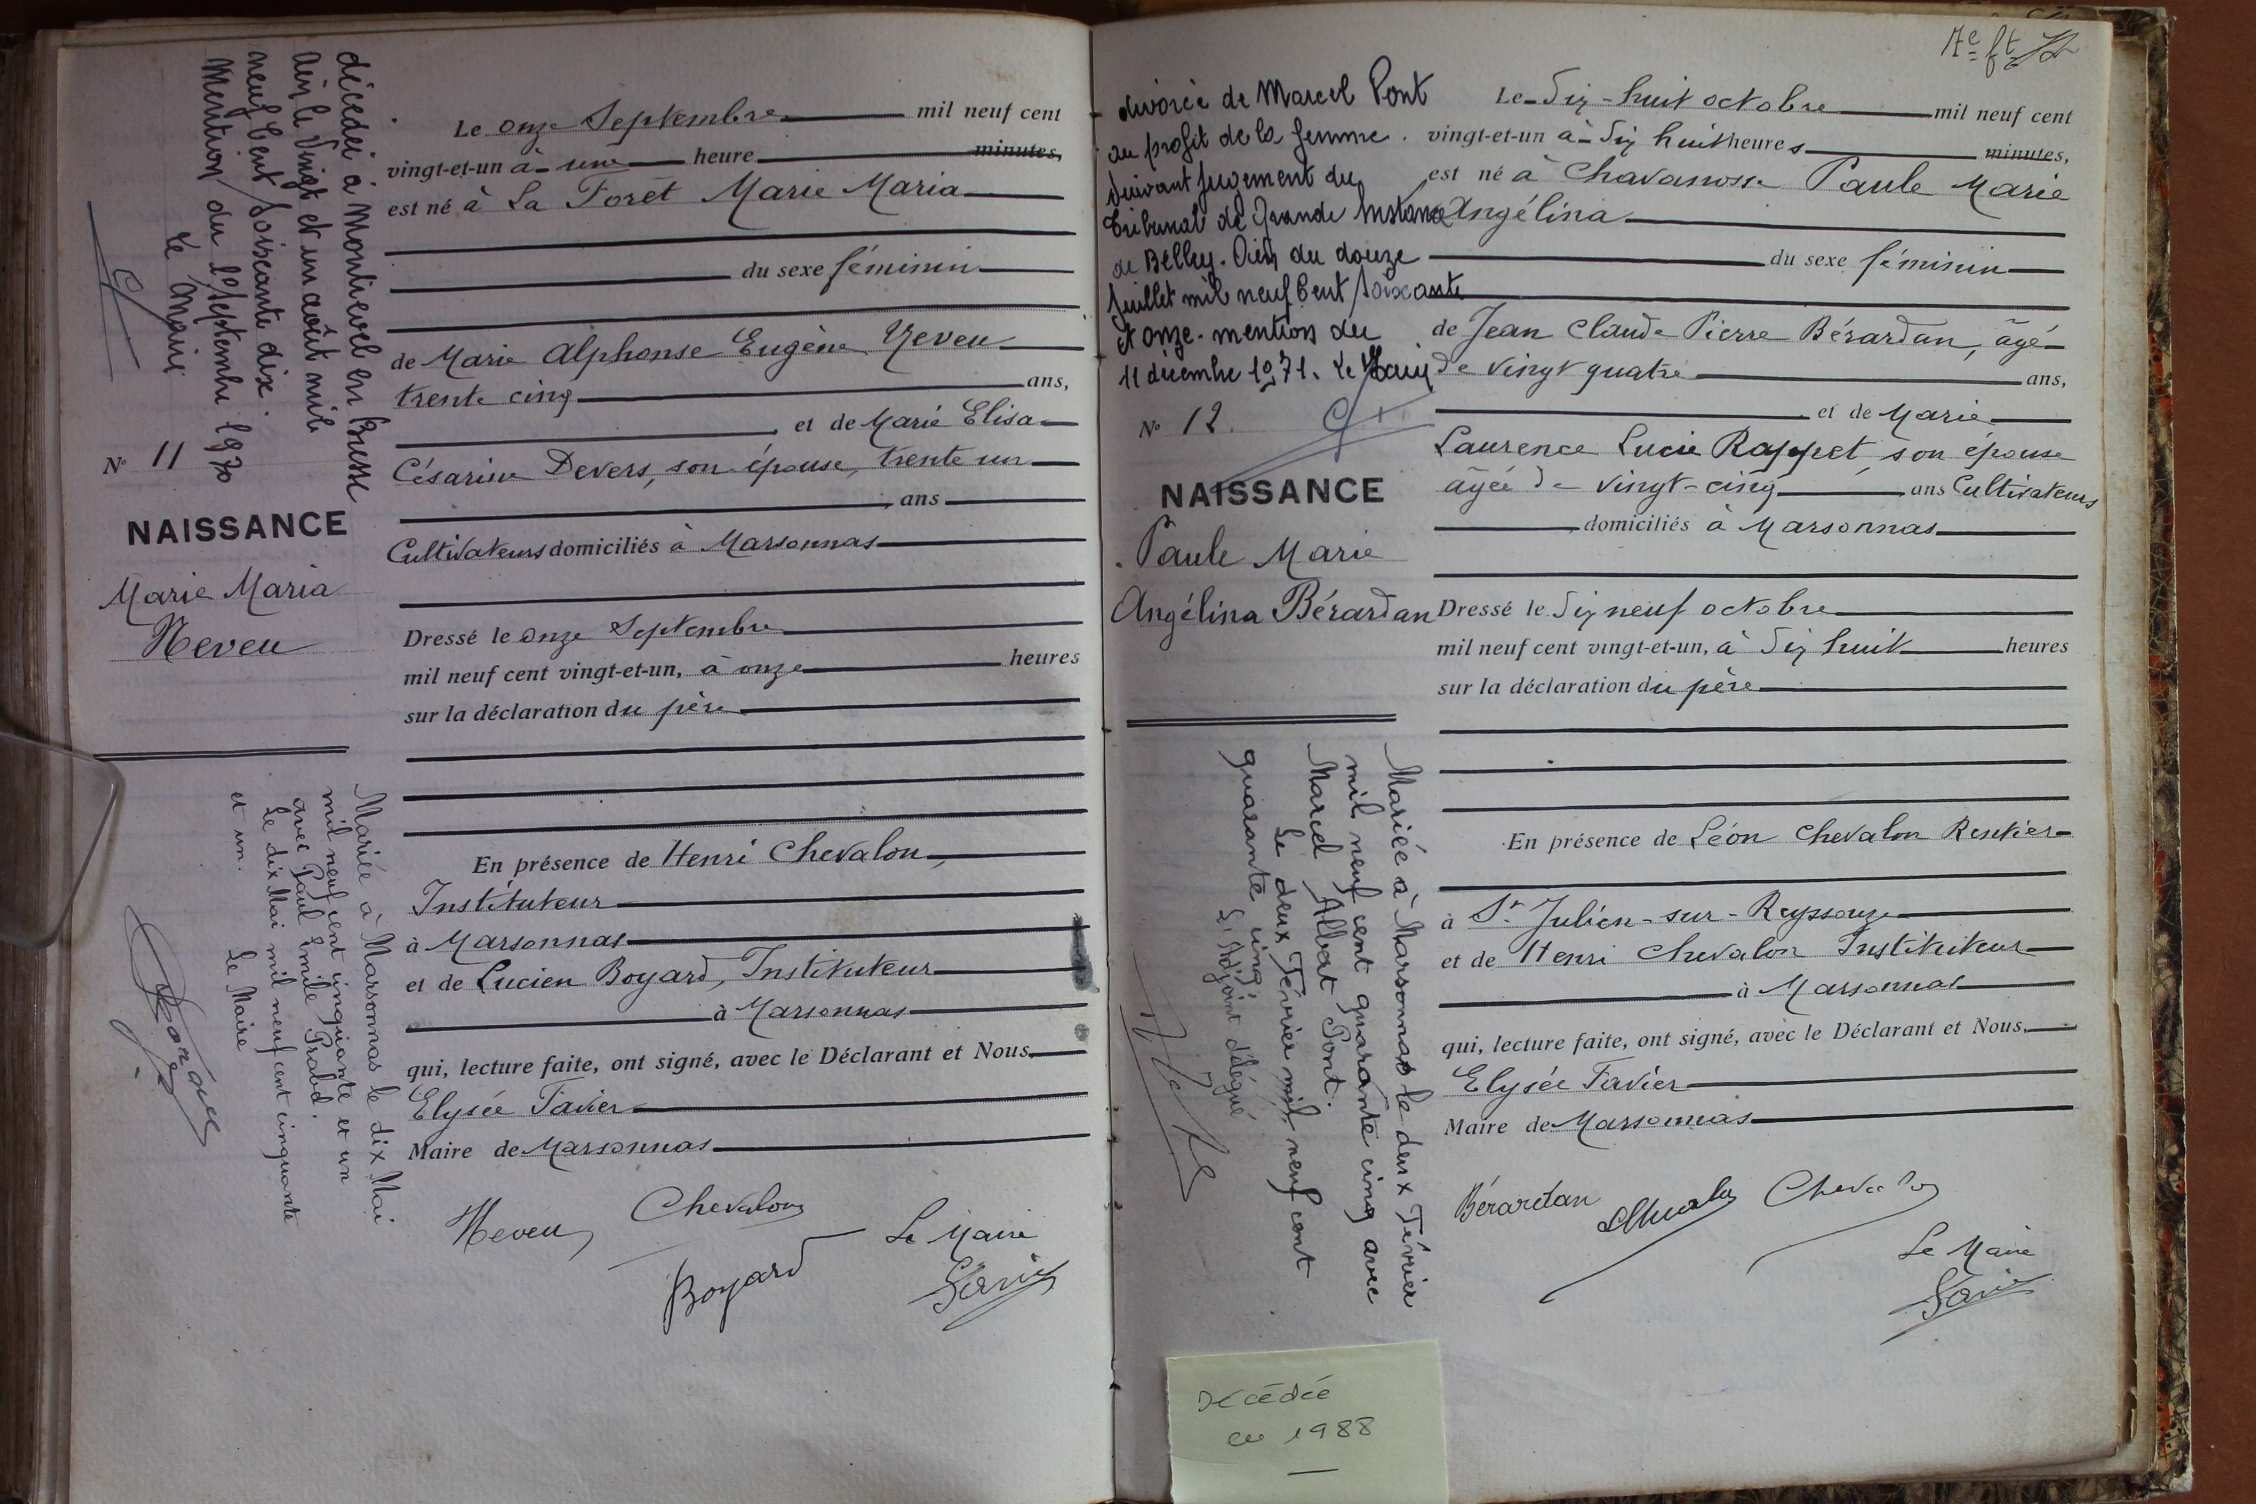 décédée à Montrevel en Bresse
Ain le vingt et un août mil
neuf cent soixante dix.
Mention du 1er septembre 1970
Le Maire
N° 11
NAISSANCE
Marie Maria
Neveu
Mariée à Marsonnas le dix Mai
mil neuf cent cinquante et un
avec Paul Emile Prabel.
Le dix Mai mil neuf cent cinquante
et un. Le Maire
Le onze Septembre mil neuf cent
vingt-et-un à une heure minutes,
est né à La Forêt Marie Maria
du sexe féminin
de Marie Alphonse Eugène Neveu
trente cinq ans,
et de Marie Elisa
Césarine Devers, son épouse, trente un
ans
Cultivateurs domiciliés à Marsonnas
Dressé le onze Septembre
mil neuf cent vingt-et-un, à onze heures
sur la déclaration du père
En présence de Henri Chevalon,
Instituteur
à Marsonnas
et de Lucien Boyard, Instituteur
à Marsonnas
qui, lecture faite, ont signé, avec le Déclarant et Nous,
Elysée Favier
Maire de Marsonnas
Neveu Chevalon Le Maire
Boyard Favier
7e ft
divorcée de Marcel Pont
au profit de la femme.
suivant jugement du
Tribunal de Grande Instance
de Belley. Ain du douze
Juillet mil neuf Cent soixante
et onze. mention du
11 décembre 1971. Le Maire
N° 12.
NAISSANCE
Paule Marie
Angélina Bérardan
Mariée à Marsonnas le deux Février
mil neuf cent quarante cinq avec
Marcel Albert Pont.
Le deux Février mil neuf cent
quarante cinq.
L'Adjoint délégué
Le dix-huit octobre mil neuf cent
vingt-et-un à dix huit heures minutes,
est né à Chavanosse Paule Marie
Angélina
du sexe féminin
de Jean Claude Pierre Bérardan, âgé
de vingt quatre ans,
et de Marie
Laurence Lucie Rappet son épouse
âgée de vingt-cinq ans Cultivateurs
domiciliés à Marsonnas
Dressé le dix neuf octobre
mil neuf cent vingt-et-un, à dix huit heures
sur la déclaration du père
En présence de Léon Chevalon Rentier
à St Julien-sur-Reyssouze
et de Henri Chevalon Instituteur
à Marsonnas
qui, lecture faite, ont signé, avec le Déclarant et Nous,
Elysée Favier
Maire de Marsonnas
Bérardan Chevalon
Le Maire
Favier
Décédée
en 1988